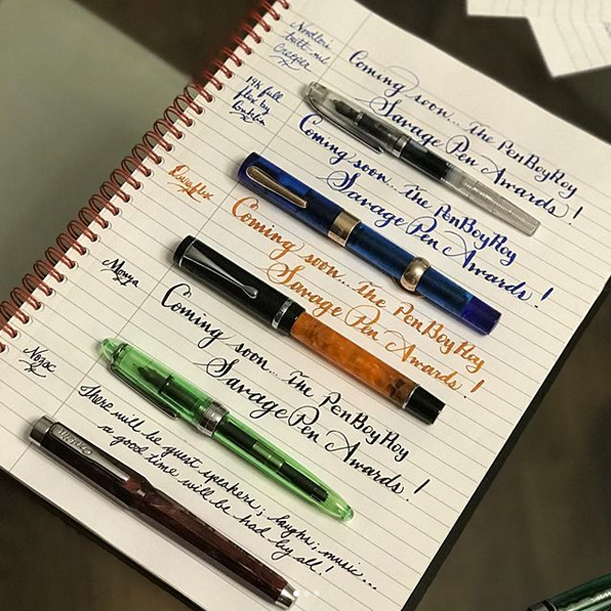 Noodlers
Creaper
Coming soon... The PenBoyRoy
Savage Pen Awards!
14k full
flex by
Conklin
Coming soon... The PenBoyRoy
Savage Pen Awards!
Duraflex
Coming soon... The PenBoyRoy
Savage Pen Awards!
Monza
Coming soon... The PenBoyRoy
Savage Pen Awards!
There will be guest speakers; laughs; music...
a good time will be had by all!